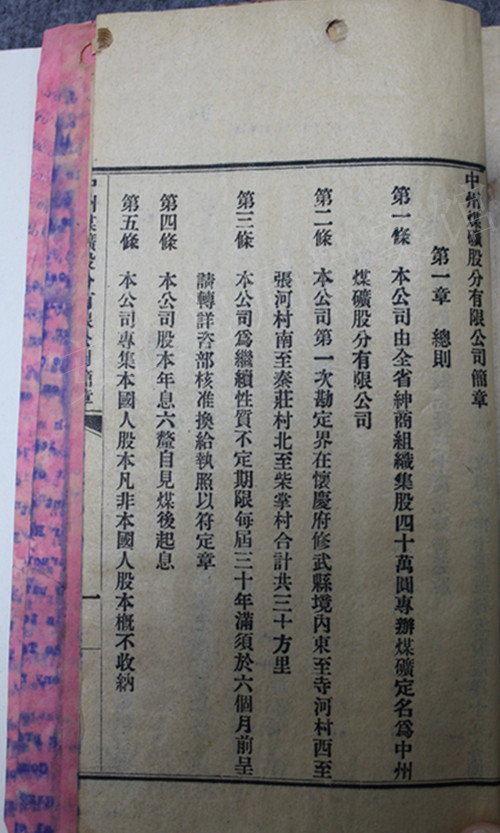 中州煤礦股分有限公司簡章
第一章　總則
第一條　本公司由全省紳商組織集股四十萬圓專辦煤礦定名爲中州
煤礦股分有限公司
第二條　本公司第一次勘定界在懷慶府修武縣境內東至寺河村西至
張河村南至秦莊村北至柴掌村合計共三十方里
第三條　本公司爲繼續性質不定期限每屆三十年滿須於六個月前呈
請轉詳咨部核准換給執照以符定章
第四條　本公司股本年息六釐自見煤後起息
第五條　本公司專集本國人股本凡非本國人股本槪不收納
中州煤礦股分有限公司簡章
一